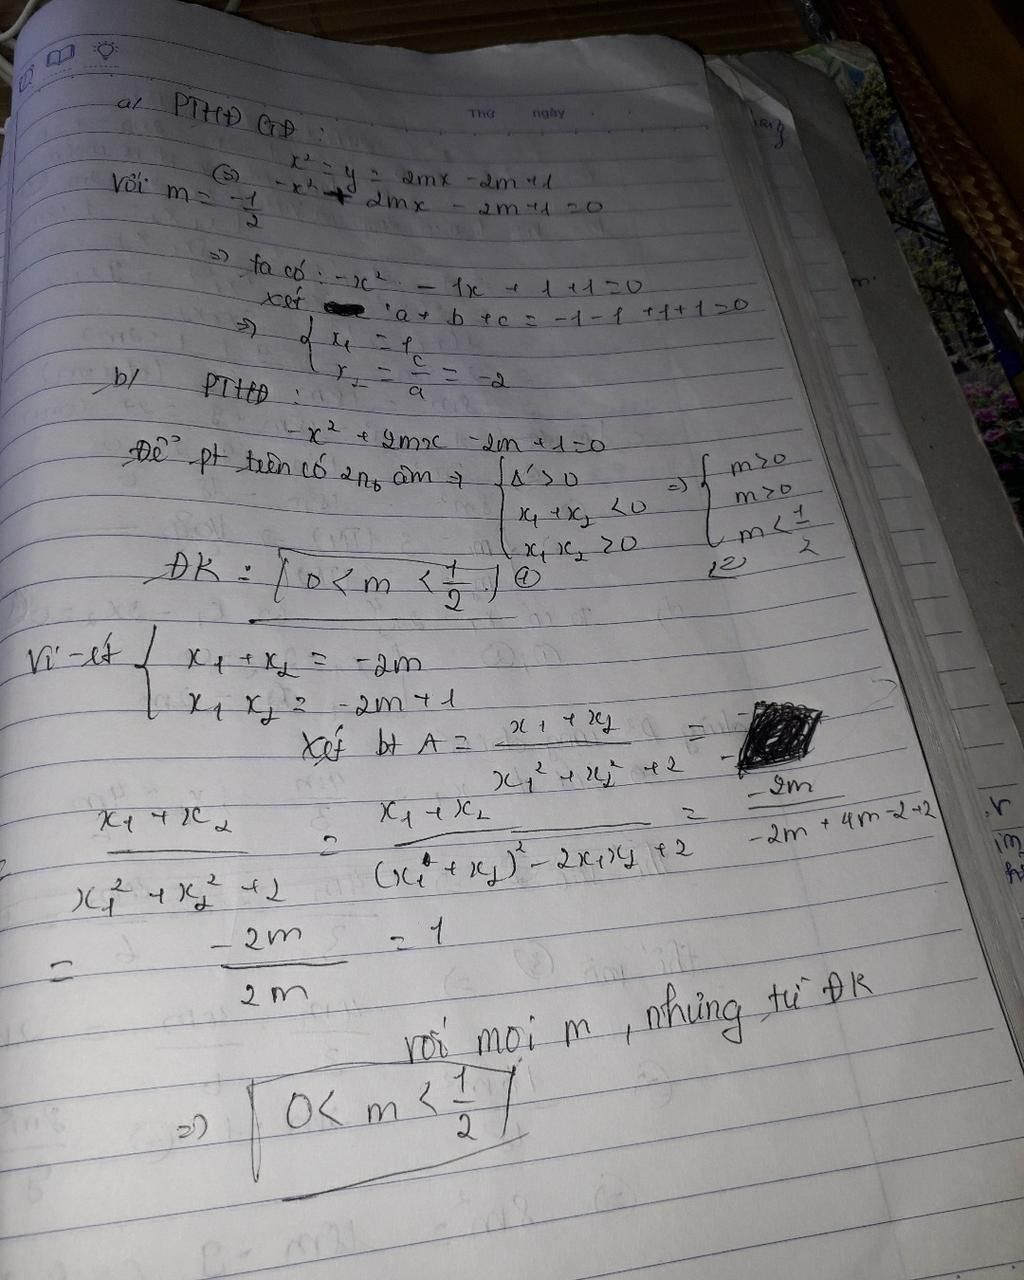 Thứ ngày
a/ PTHĐ GĐ :
x² = y = 2mx - 2m+1
(=) -x² + 2mx - 2m+1 = 0
Với m = -1/2
=> ta có : -x² - 1x + 1 +1 = 0
xét : a + b + c = -1 - 1 + 1 + 1 = 0
=> { x₁ = 1
x₂ = c/a = -2
b/ PTHĐ :
-x² + 2mx - 2m + 1 = 0
Để pt trên có 2n₀ âm => { Δ' > 0 => { m > 0
x₁ + x₂ < 0 m > 0
x₁ x₂ > 0 m < 1/2
ĐK : 0 < m < 1/2 ①
Vi-ét { x₁ + x₂ = -2m
x₁ x₂ = -2m + 1
Xét bt A = (x₁ + x₂)/(x₁² + x₂² + 2) =
(x₁ + x₂)/(x₁² + x₂² + 2) = (x₁ + x₂)/((x₁ + x₂)² - 2x₁x₂ + 2) = -2m/(-2m + 4m - 2 + 2)
= -2m/2m = 1
với mọi m , nhưng từ ĐK
=> 0 < m < 1/2